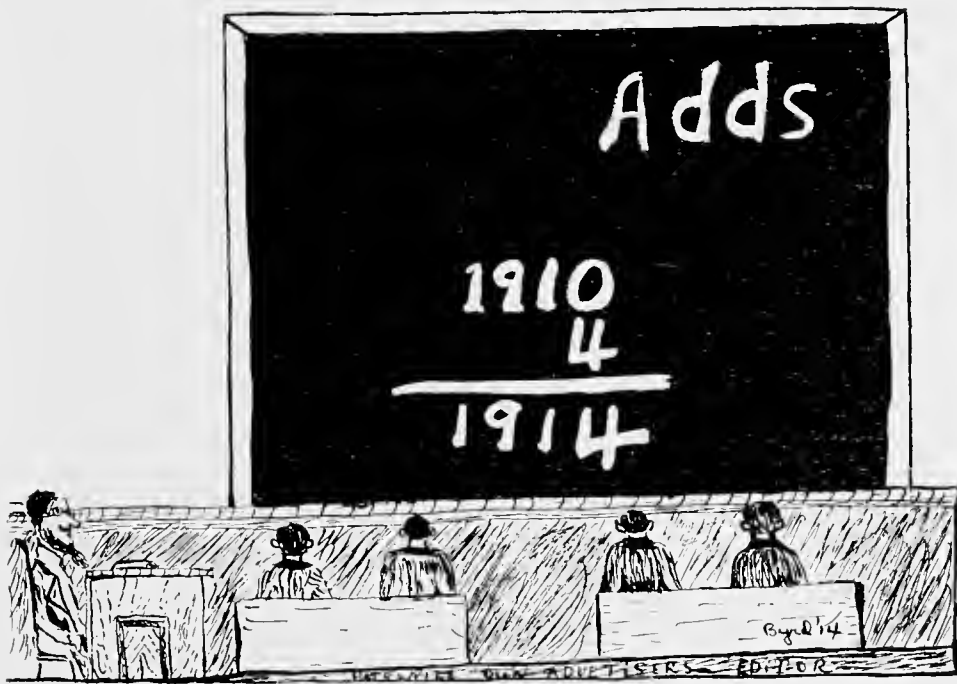 Adds
1910
4
1914
Byrd '14
ADVETISERS EDITOR